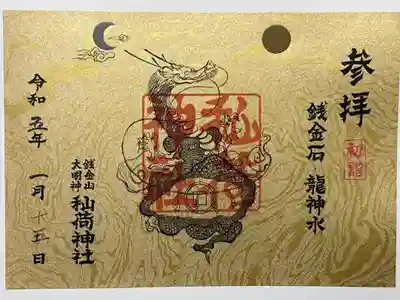 参拝
初詣
銭金石 龍神水
令和 五年 一月 十五日
銭金山
大明神
秈荷神社